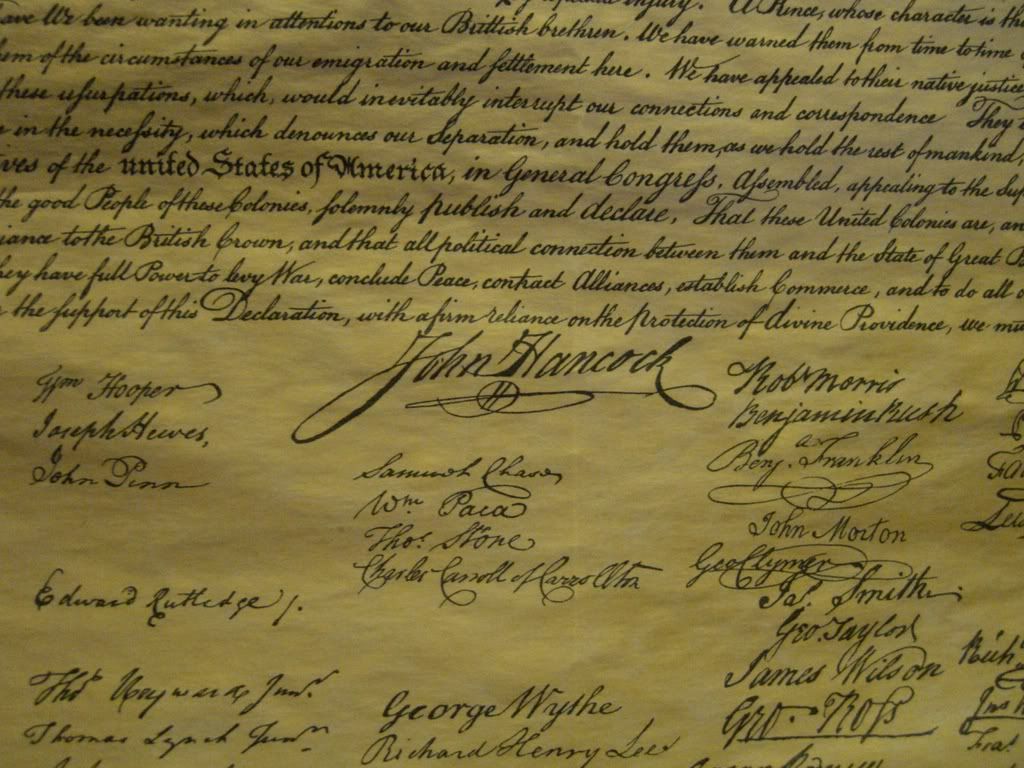 injury. A Prince, whose character is
have We been wanting in attentions to our Brittish brethren. We have warned them from time to time
of the circumstances of our emigration and settlement here. We have appealed to their native justice
these usurpations, which, would inevitably interrupt our connections and correspondence They
in the necessity, which denounces our Separation, and hold them, as we hold the rest of mankind,
ves of the united States of America, in General Congress, Assembled, appealing to the Sup
the good People of these Colonies, solemnly publish and declare, That these United Colonies are, an
iance to the British Crown, and that all political connection between them and the State of Great B
they have full Power to levy War, conclude Peace, contract Alliances, establish Commerce, and to do all
the support of this Declaration, with a firm reliance on the Protection of divine Providence, we mu
John Hancock
Wm Hooper
Joseph Hewes,
John Penn
Edward Rutledge /.
Thos Heyward Junr.
Thomas Lynch Junr.
Samuel Chase
Wm. Paca
Thos. Stone
Charles Carroll of Carrollton
George Wythe
Richard Henry Lee
Robt Morris
Benjamin Rush
Benj. Franklin
John Morton
Geo Clymer
Jas. Smith
Geo. Taylor
James Wilson
Geo. Ross